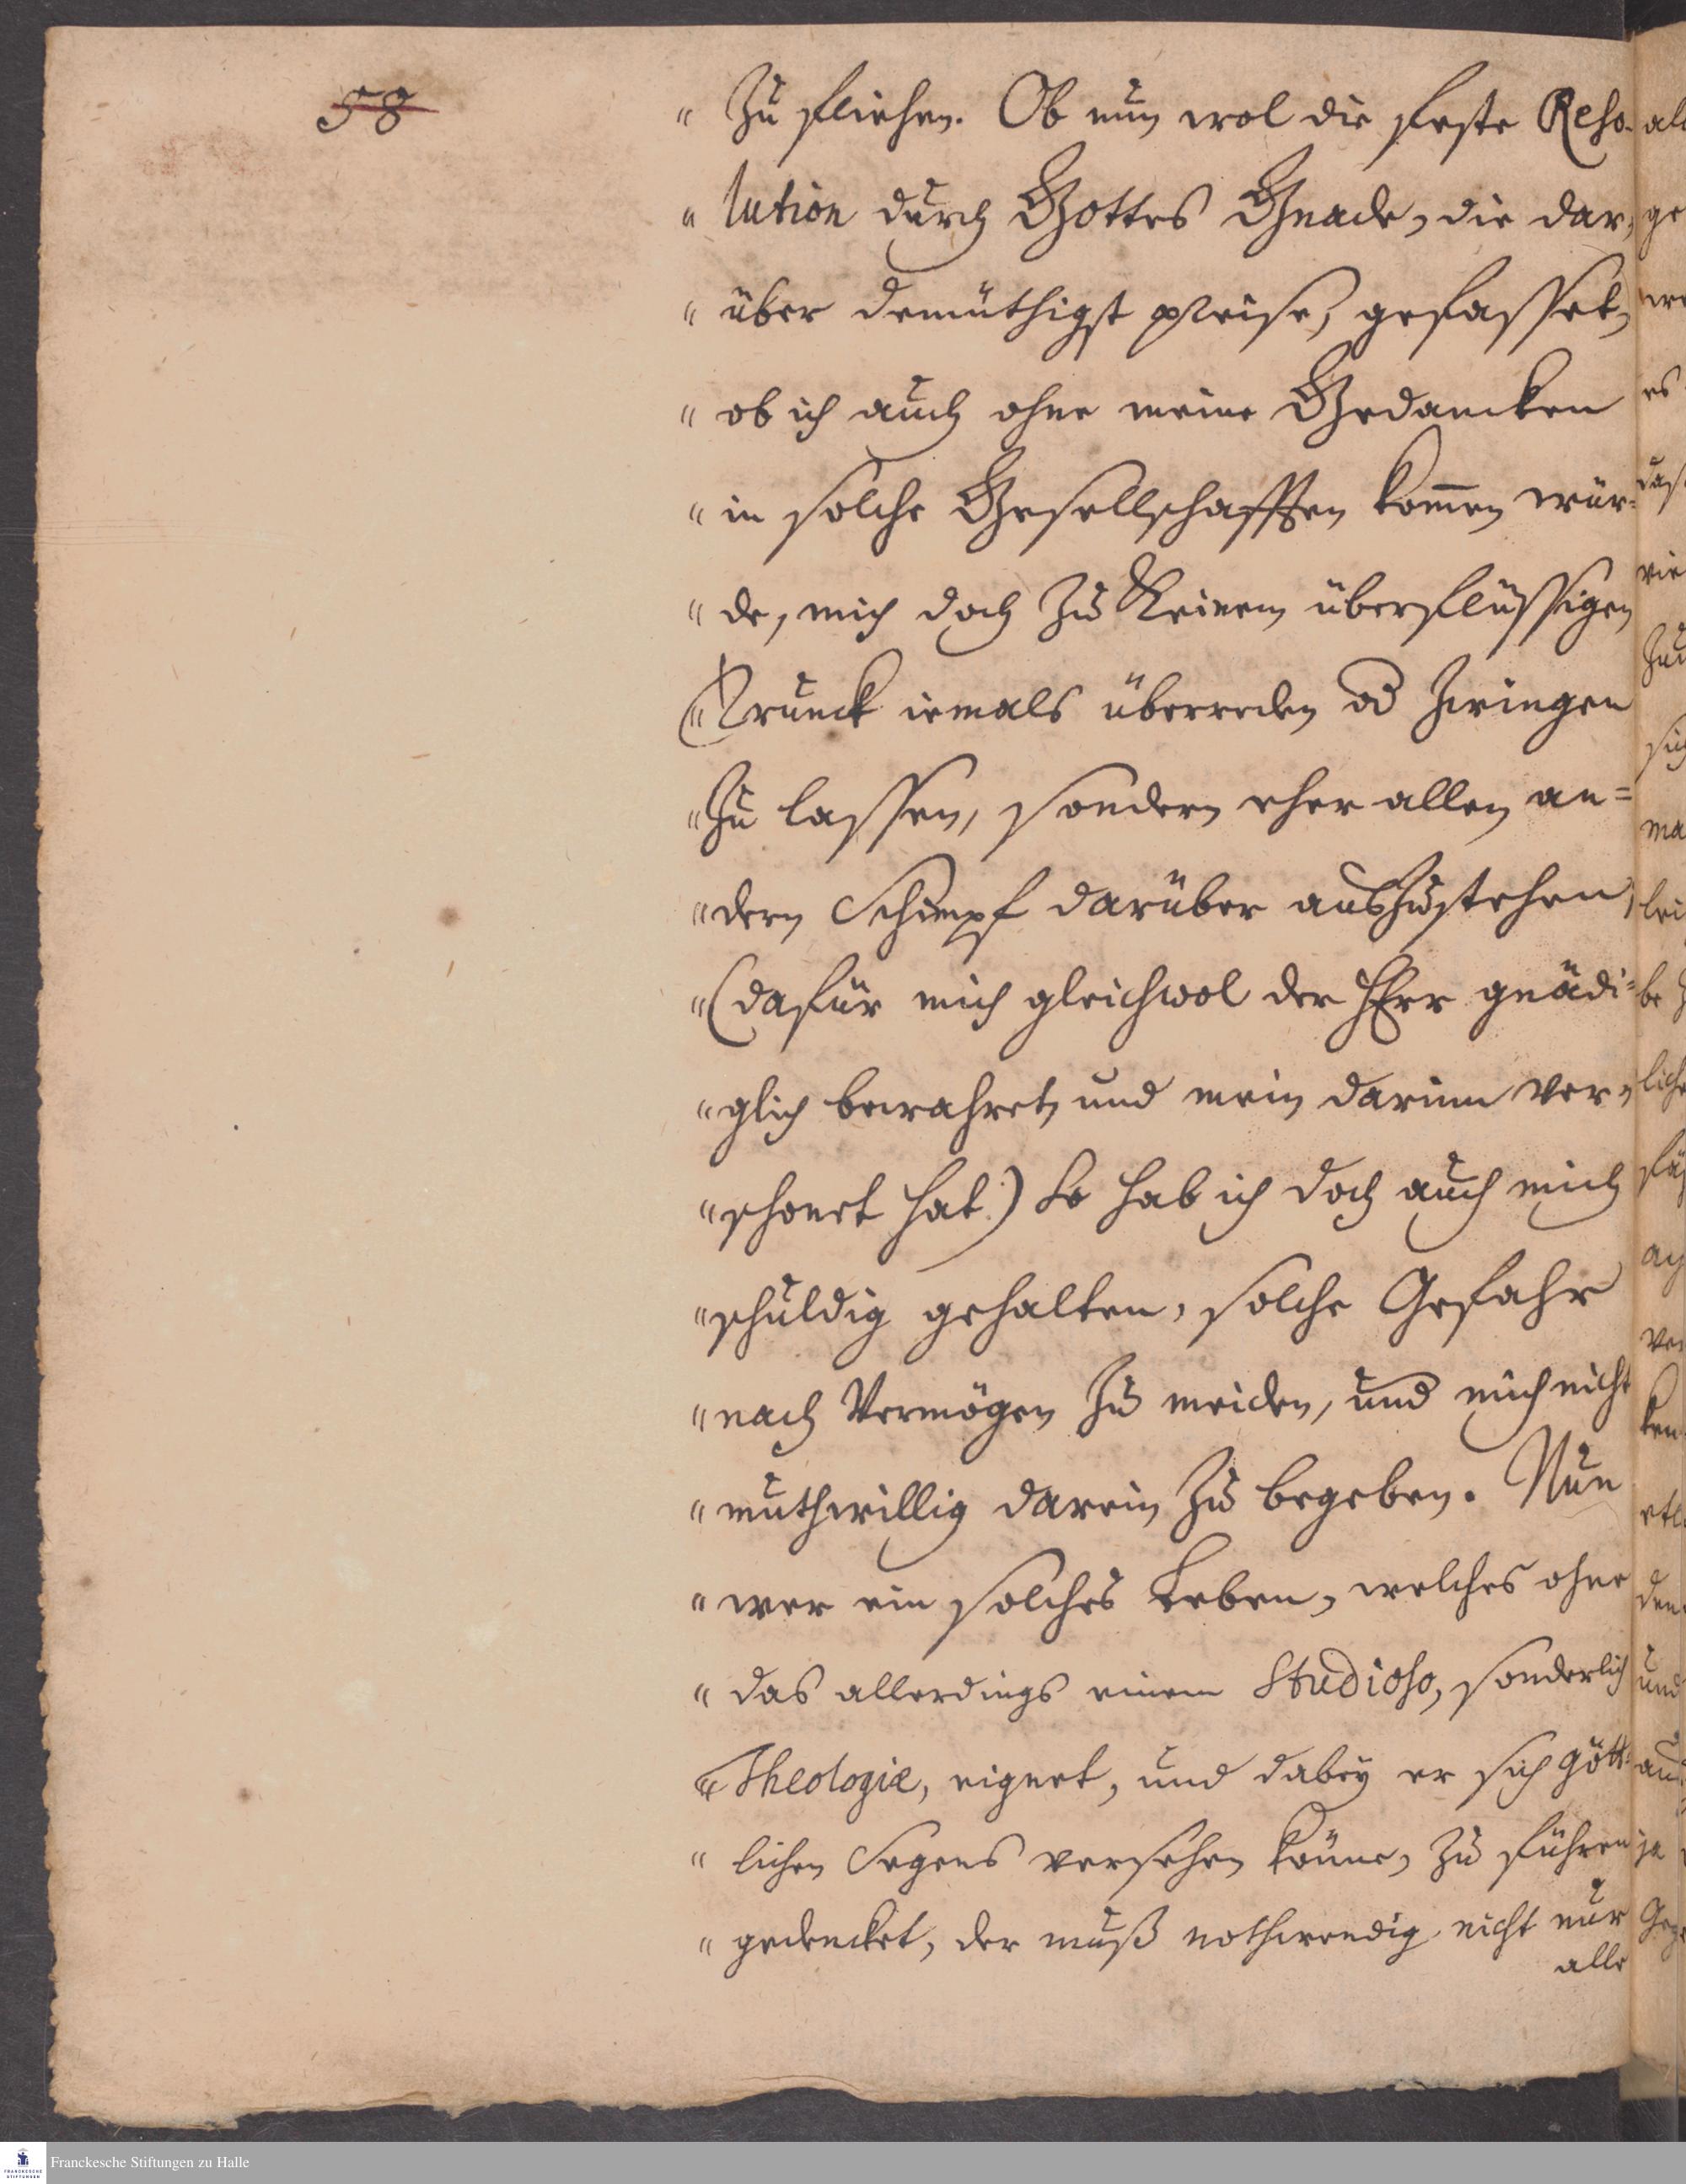 58
" Zu fliehen. Ob nun wol die feste Reso-
" lution durch Gottes Gnade, die dar,
" über demüthigst preise, gefasset,
" ob ich auch ohne meine Gedancken
" in solche Gesellschafften kom̄en wür-
" de, mich doch zu keinem überflüssigen
" Trunck iemals überreden od zwingen
" Zu lassen, sondern eher allen an=
" dern Schimpf darüber auszustehen,
" (dafür mich gleichwol der HErr gnädi=
" glich bewahret, und mein darinn ver,
" schonet hat.) So hab ich doch auch mich
" schuldig gehalten, solche Gefahr
" nach Vermögen zu meiden, und mich nicht
" muthwillig darein zu begeben. Nun
" wer ein solches Leben, welches ohne
" das allerdings einem Studioso, sonderlich
" Theologiæ, eignet, und dabey er sich gött-
" lichen Segens versehen könne, zu führen
" gedencket, der muß nothwendig nicht nur
alle
Franckesche Stiftungen zu Halle